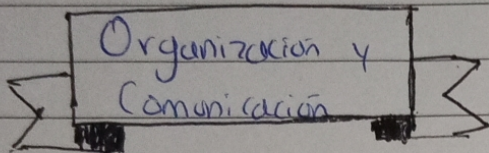 Organización y
Comunicación